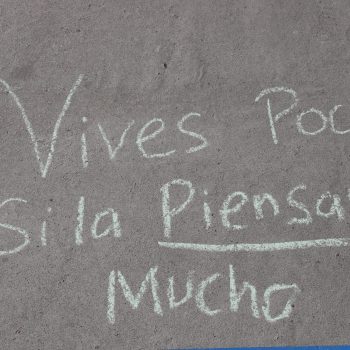 Vives Poc
Si la Piensa
Mucho